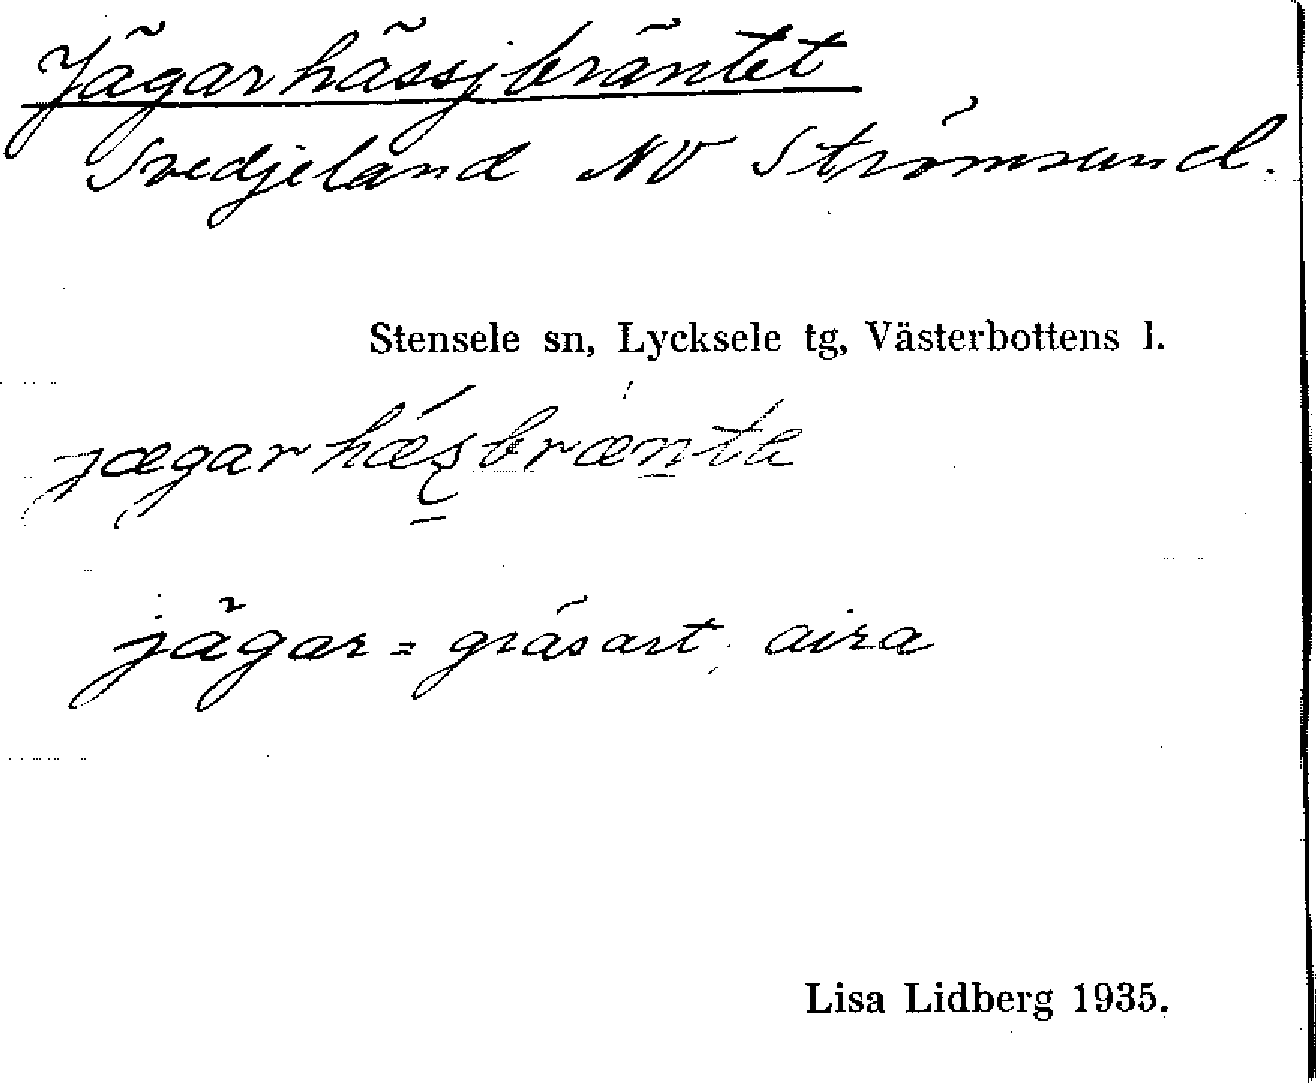 Jägarhässjbräntet
Svedjeland NV Strömsund.
Stensele sn, Lycksele tg, Västerbottens l.
jægarhæʂbrænta
jägar = gräsart, aira
Lisa Lidberg 1935.